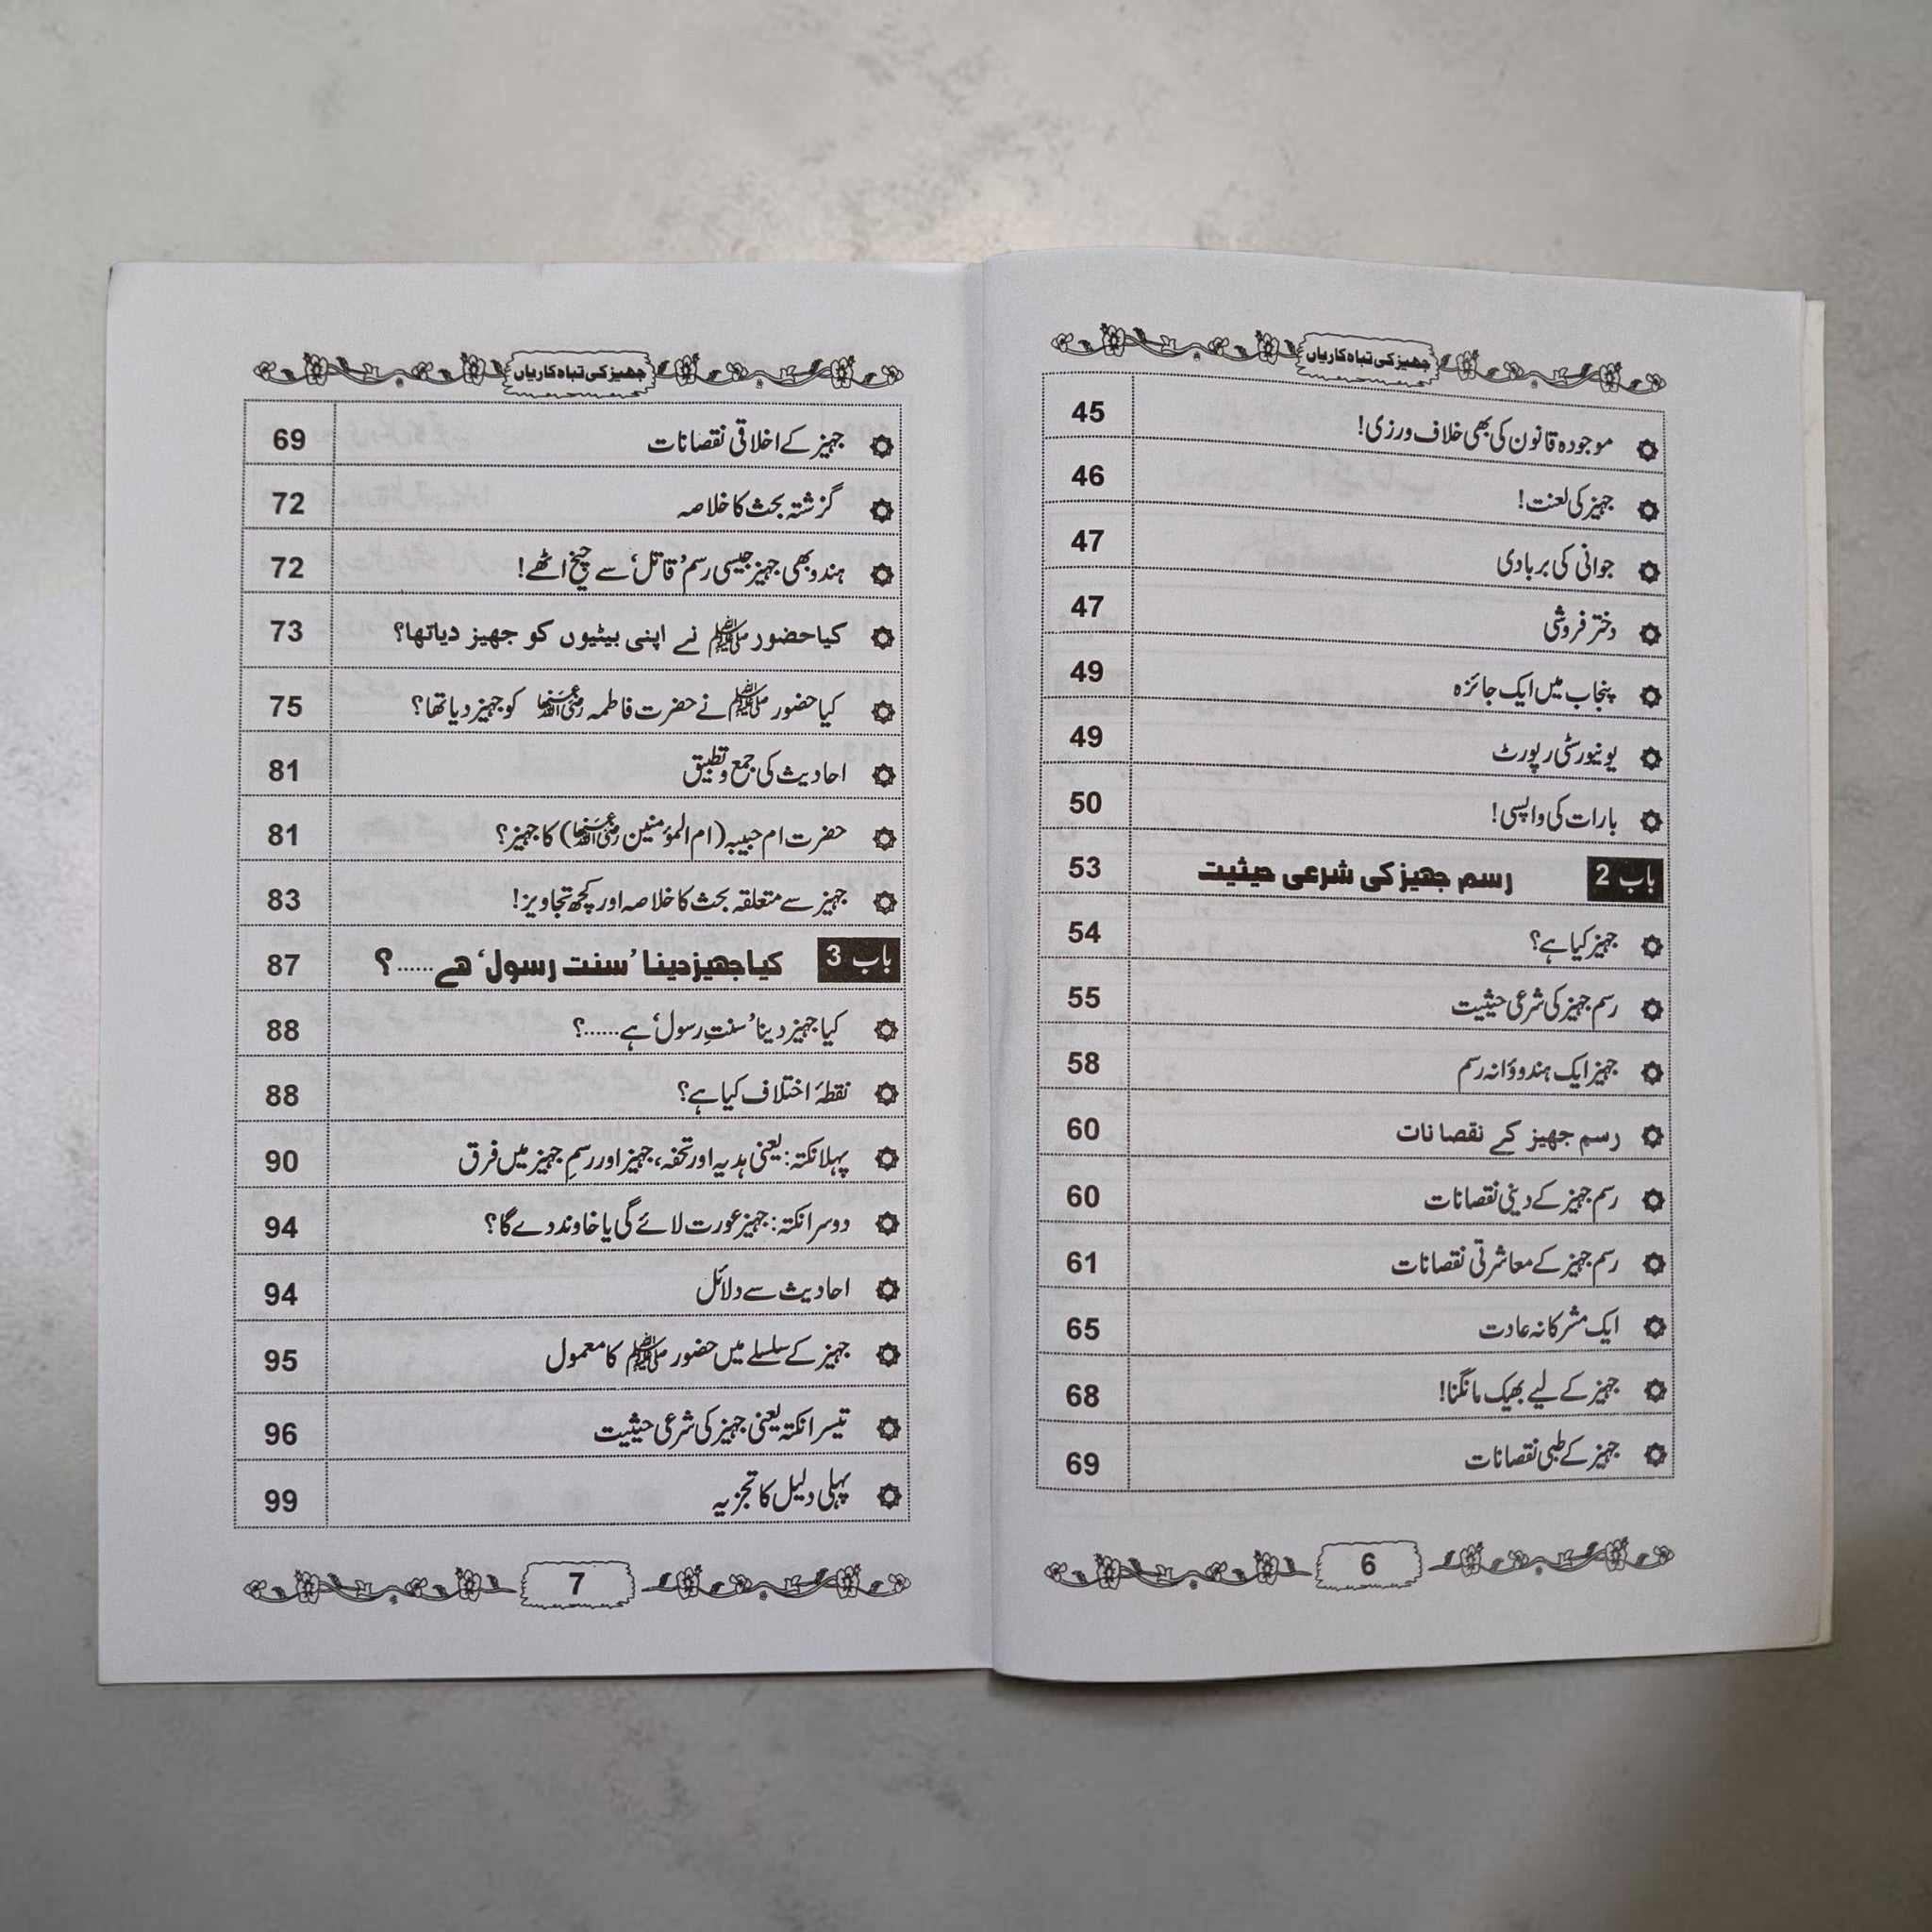 جهیز کی تباہ کاریاں
موجودہ قانون کی بھی خلاف ورزی! 45
جہیز کی لعنت! 46
جوانی کی بربادی 47
دختر فروشی 47
پنجاب میں ایک جائزہ 49
یونیورسٹی رپورٹ 49
بارات کی واپسی! 50
باب 2 رسم جهیز کی شرعی حیثیت 53
جہیز کیا ہے؟ 54
رسم جہیز کی شرعی حیثیت 55
جہیز ایک ہندوؤانہ رسم 58
رسم جهیز کے نقصانات 60
رسم جہیز کے دینی نقصانات 60
رسم جہیز کے معاشرتی نقصانات 61
ایک مشرکانہ عادت 65
جہیز کے لیے بھیک مانگنا! 68
جہیز کے طبی نقصانات 69
6
جهیز کی تباہ کاریاں
جہیز کے اخلاقی نقصانات 69
گزشتہ بحث کا خلاصہ 72
ہندو بھی جہیز جیسی رسم ’قاتل‘ سے چیخ اٹھے! 72
کیا حضور ﷺ نے اپنی بیٹیوں کو جهیز دیا تھا؟ 73
کیا حضور ﷺ نے حضرت فاطمہ رضی اللہ عنہا کو جہیز دیا تھا؟ 75
احادیث کی جمع و تطبیق 81
حضرت ام حبیبہ (ام المؤمنین رضی اللہ عنہا) کا جہیز؟ 81
جہیز سے متعلقہ بحث کا خلاصہ اور کچھ تجاویز! 83
باب 3 کیا جهیز دینا ’سنت رسول‘ ھے......؟ 87
کیا جہیز دینا ’سنتِ رسول‘ ہے......؟ 88
نقطۂ اختلاف کیا ہے؟ 88
پہلا نکتہ: یعنی ہدیہ اور تحفہ، جہیز اور رسمِ جہیز میں فرق 90
دوسرا نکتہ: جہیز عورت لائے گی یا خاوند دے گا؟ 94
احادیث سے دلائل 94
جہیز کے سلسلے میں حضور ﷺ کا معمول 95
تیسرا نکتہ یعنی جہیز کی شرعی حیثیت 96
پہلی دلیل کا تجزیہ 99
7